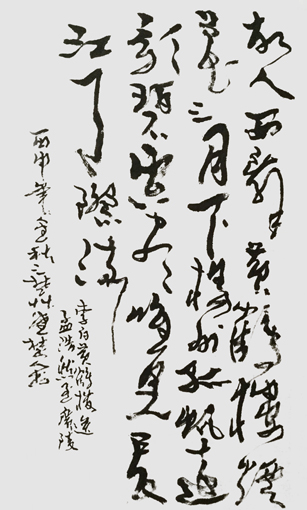 故人西辭黄鶴樓煙
花三月下揚州孤帆遠
影碧空盡唯見長
江天際流
李白黄鶴樓送
孟浩然之廣陵
丙申秋